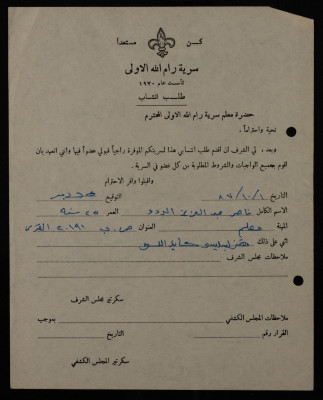 كن مستعداً
سرية رام الله الاولى
تأسست عام ١٩٢٠
طلب انتساب
حضرة معلم سرية رام الله الاولى المحترم
تحية واحتراماً،
وبعد، لي الشرف ان اقدم طلب انتسابي هذا لسريتكم الموقرة راجياً قبولي عضواً فيها واني اتعهد بان
اقوم بجميع الواجبات والشروط المطلوبة من كل عضو في السرية.
واقبلوا وافر الاحترام
التاريخ ٨٧/١٠/١ التوقيع
الاسم الكامل عبد العزيز العمر ٢٥ سنة
المهنة معلم العنوان ص.ب ٢٠١٩١ القدس
اثني على ذلك
ملاحظات مجلس الشرف
سكرتير مجلس الشرف
ملاحظات المجلس الكشفي بموجب
القرار رقم التاريخ
سكرتير المجلس الكشفي